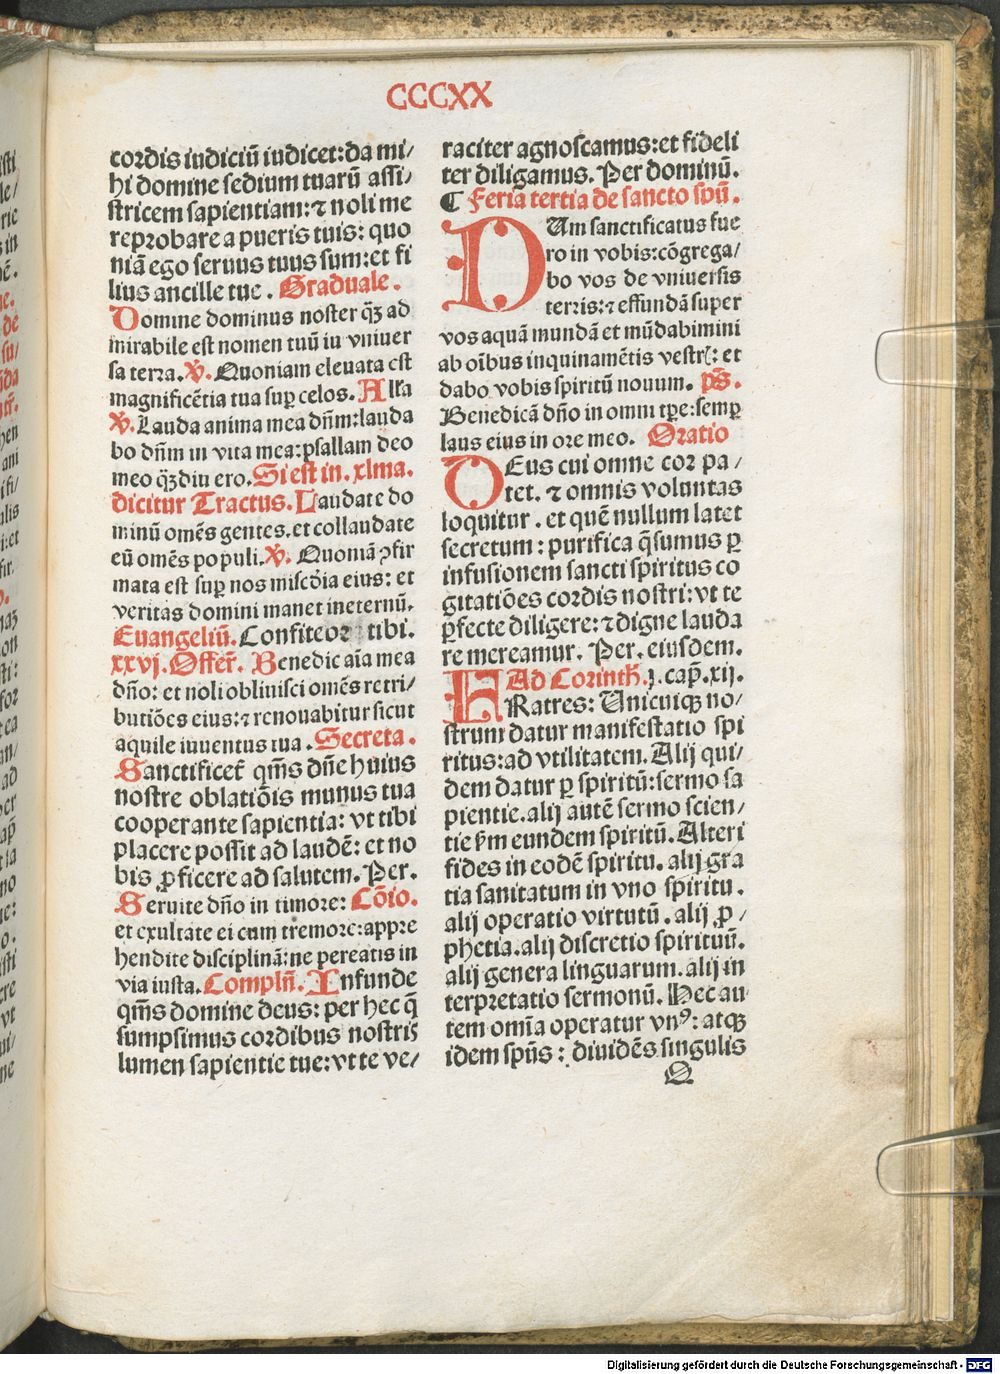 CCCXX
cordis iudiciū iudicet:da mi/
hi domine sedium tuarū assi/
stricem sapientiam:⁊ noli me
reprobare a pueris tuis: quo
niā ego seruus tuus sum:et fi
lius ancille tue. Graduale.
Domine dominus noster qꝫ ad
mirabile est nomen tuū iu vniuer
sa terra. ℣. Quoniam eleuata est
magnificētia tua suꝑ celos. Alľa
℣. Lauda anima mea dñm:lauda
bo dñm in vita mea:psallam deo
meo qꝫdiu ero. Si est in. xlma.
dicitur Tractus. Laudate do
minū omēs gentes.et collaudate
eū omēs populi. ℣. Quoniā ꝯfir
mata est suꝑ nos misc̄dia eius: et
veritas domini manet ineternū.
Euangeliū. Confiteor tibi.
xxvj. Offer̄. Benedic aīa mea
dño: et noli obliuisci omēs retri/
butiōes eius:⁊ renouabitur sicut
aquile iuuentus tua. Secreta.
Sanctificet̄ qm̄s dñe huius
nostre oblatiōis munus tua
cooperante sapientia: vt tibi
placere possit ad laudē: et no
bis ꝓficere ad salutem. Per.
Seruite dño in timore: Cōio.
et exultate ei cum tremore:appre
hendite disciplinā:ne pereatis in
via iusta. Complñ. Infunde
qm̄s domine deus: per hec q̄
sumpsimus cordibus nostris
lumen sapientie tue:vt te ve/
raciter agnoscamus:et fideli
ter diligamus. Per dominū.
¶ Feria tertia de sancto spū.
DUm sanctificatus fue
ro in vobis:cōgrega/
bo vos de vniuersis
terris:⁊ effundā super
vos aquā mundā et mūdabimini
ab oībus inquinamētis vestrꝭ: et
dabo vobis spiritū nouum. p̄s.
Benedicā dño in omni tꝑe:semꝑ
laus eius in ore meo. Oratio
DEus cui omne cor pa/
tet. ⁊ omnis voluntas
loquitur. et quē nullum latet
secretum: purifica q̄sumus ꝑ
infusionem sancti spiritus co
gitatiōes cordis nostri: vt te
ꝑfecte diligere: ⁊ digne lauda
re mereamur. Per. eiusdem.
Ad Corinth̄. j. cap̄. xij.
FRatres: Unicuiqꝫ no/
strum datur manifestatio spi
ritus:ad vtilitatem. Alij qui/
dem datur ꝑ spiritū:sermo sa
pientie.alij autē sermo scien/
tie ẜm eundem spiritū. Alteri
fides in eodē spiritu. alij gra
tia sanitatum in vno spiritu.
alij operatio virtutū. alij ꝓ/
phetia.alij discretio spirituū.
alij genera linguarum.alij in
terpretatio sermonū. Hec au
tem omīa operatur vnꝰ: atqꝫ
idem spūs: diuidēs singulis
Q
Digitalisierung gefördert durch die Deutsche Forschungsgemeinschaft - DFG